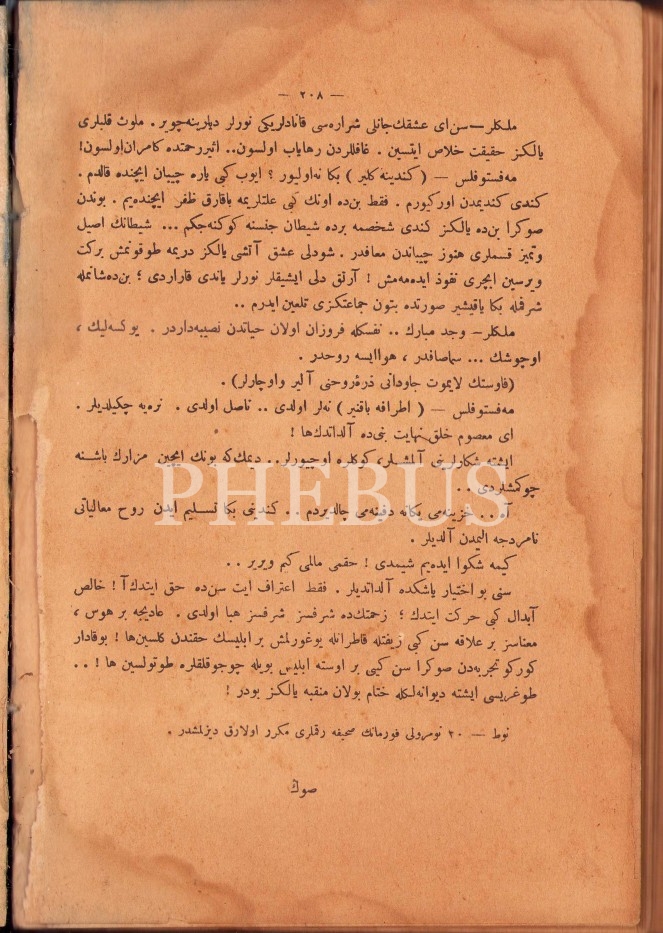 — ٢٠٨ —
ملكلر — سن ای عشقك جانلی شراره‌سی قانادلریكی نورلر دیارینه چویر . ملوث قلبلری
یالكز حقیقت خلاص ایتسین . غافللردن رهایاب اولسون .. اثیر رحمتده كامران اولسون !
مه‌فستوفلس — ( كندینه كلیر ) بكا نه اولیور ؟ ایوب كبی یاره چیبان ایچنده قالدم .
كندی كندیمدن اوركیورم . فقط بن‌ده اونك كبی علتلریمه باقارق ظفر ایچنده‌یم . بوندن
صوكرا بن‌ده یالكز كندی شخصمه برده شیطان جنسنه كوكنه‌جكم ... شیطانك اصیل
وتمیز قسملری هنوز چیباندن معافدر . شو دلی عشق آتشی یالكز دریمه طوقونمش بركت
ویرسین ایچری نفوذ ایده‌مه‌مش ! آرتق دلی ایشیقلر نورلر یاندی قاراردی ؛ بن‌ده شانمله
شرفمله بكا یاقیشیر صورتده بتون جماعتكزی تلعین ایدرم ..
ملكلر — وجد مبارك .. نفسكله فروزان اولان حیاتدن نصیبه‌داردر . یوكسه‌لیك ،
اوچوشك ... سما صافدر ، هوا ایسه روحدر .
(فاوستك لایموت جاودانی ذرهٔ روحنی آلیر واوچارلر) .
مه‌فستوفلس — ( اطرافه باقنیر ) نه‌لر اولدی .. ناصل اولدی . نره‌یه چكیلدیلر .
ای معصوم خلق نهایت بنی‌ده آلداتدك‌ها !
ایشته شكارلرینی آلمشلر، كوكلره اوچیورلر .. دیمك كه بونك ایچین مزارك باشنه
چوكمشلردی . .
آه . . خزینه‌می یكانه دفینه‌می چالدیردم . . كندینی بكا تسلیم ایدن روح معالیاتی
نامردجه الیمدن آلدیلر .
كیمه شكوا ایده‌یم شیمدی ! حقمی مالمی كیم ویریر . .
سنی بو اختیار یاشكده آلداتدیلر . فقط اعتراف ایت سن‌ده حق ایتدك آ ! خالص
آبدال كبی حركت ایتدك ؛ زحمتك‌ده شرفسز شرفسز هبا اولدی . عادیجه بر هوس ،
معناسز بر علاقه سن كبی زیفتله قاطرانله یوغورلمش بر ابلیسك حقندن كلسین‌ها ! بوقادار
كوركو تجربه‌دن صوكرا سن كیبی بر اوسته ابلیس بویله چوجوقلقلره طوتولسین ها ! . .
طوغریسی ایشته دیوانه‌لكله ختام بولان منقبه یالكز بودر !
نوط — ٢٠ نومرولی فورمانك صحیفه رقملری مكرر اولارق دیزلمشدر .
صوك
PHEBUS